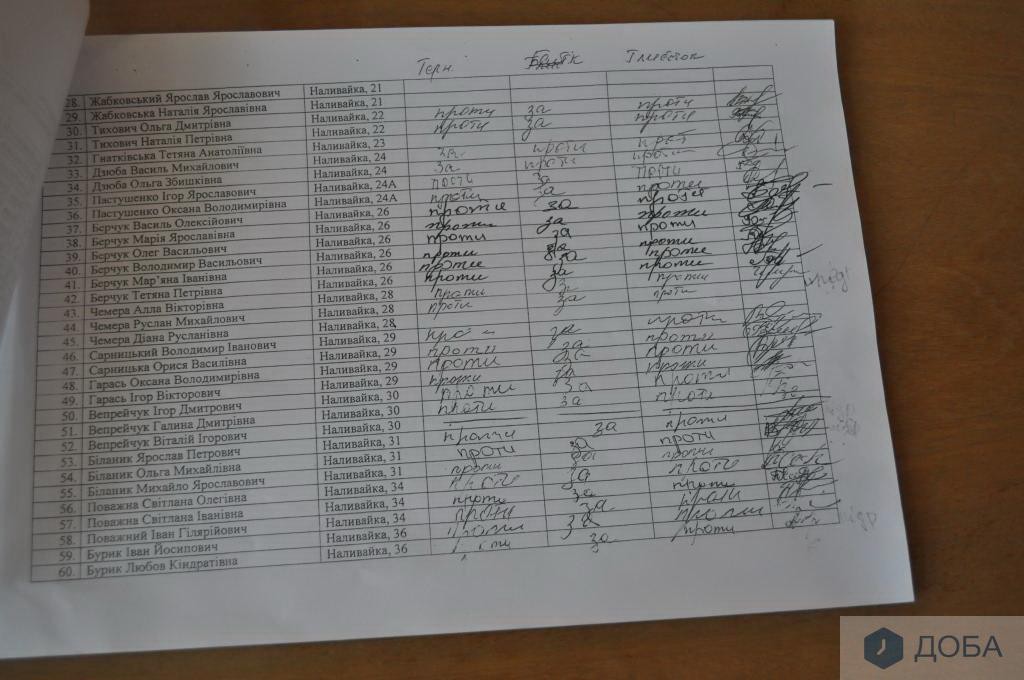 Терн. Балтік Тмєсток
28. Жабковський Ярослав Ярославович Наливайка, 21
29. Жабковська Наталія Ярославівна Наливайка, 21
30. Тихович Ольга Дмитрівна Наливайка, 22 проти за проти
31. Тихович Наталія Петрівна Наливайка, 22 проти за проти
32. Гнатківська Тетяна Анатоліївна Наливайка, 23 за проти прот
33. Дзюба Василь Михайлович Наливайка, 24 за проти проти
34. Дзюба Ольга Збишківна Наливайка, 24 за
35. Пастушенко Ігор Ярославович Наливайка, 24А проти за проти
36. Пастушенко Оксана Володимирівна Наливайка, 24А проти за проти
37. Берчук Василь Олексійович Наливайка, 26 проти за проти
38. Берчук Марія Ярославівна Наливайка, 26 проти за проти
39. Берчук Олег Васильович Наливайка, 26 проти за проти
40. Берчук Володимир Васильович Наливайка, 26 проти за проти
41. Берчук Мар'яна Іванівна Наливайка, 26 проти за проти
42. Берчук Тетяна Петрівна Наливайка, 26 проти за проти
43. Чемера Алла Вікторівна Наливайка, 28 проти за проти
44. Чемера Руслан Михайлович Наливайка, 28
45. Чемера Діана Русланівна Наливайка, 28
46. Сарницький Володимир Іванович Наливайка, 29 за проти
47. Сарницька Орися Василівна Наливайка, 29 проти за проти
48. Гарась Оксана Володимирівна Наливайка, 29 проти за проти
49. Гарась Ігор Вікторович Наливайка, 29 проти за проти
50. Вепрейчук Ігор Дмитрович Наливайка, 30 проти за проти
51. Вепрейчук Галина Дмитрівна Наливайка, 30 проти за проти
52. Вепрейчук Віталій Ігорович Наливайка, 30
53. Біланик Ярослав Петрович Наливайка, 31 проти за проти
54. Біланик Ольга Михайлівна Наливайка, 31 проти за проти
55. Біланик Михайло Ярославович Наливайка, 31 проти за проти
56. Поважна Світлана Олегівна Наливайка, 34 проти за проти
57. Поважна Світлана Іванівна Наливайка, 34 проти за проти
58. Поважний Іван Гілярійович Наливайка, 34 проти за проти
59. Бурик Іван Йосипович Наливайка, 36 проти за проти
60. Бурик Любов Кіндратівна Наливайка, 36 за проти
ДОБА